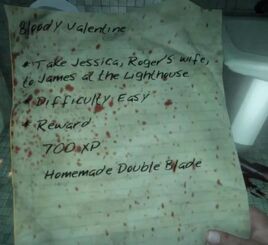 Bloody Valentine
• Take Jessica, Roger's wife,
to James at the Lighthouse
• Difficulty Easy
• Reward
700 XP
Homemade Double Blade